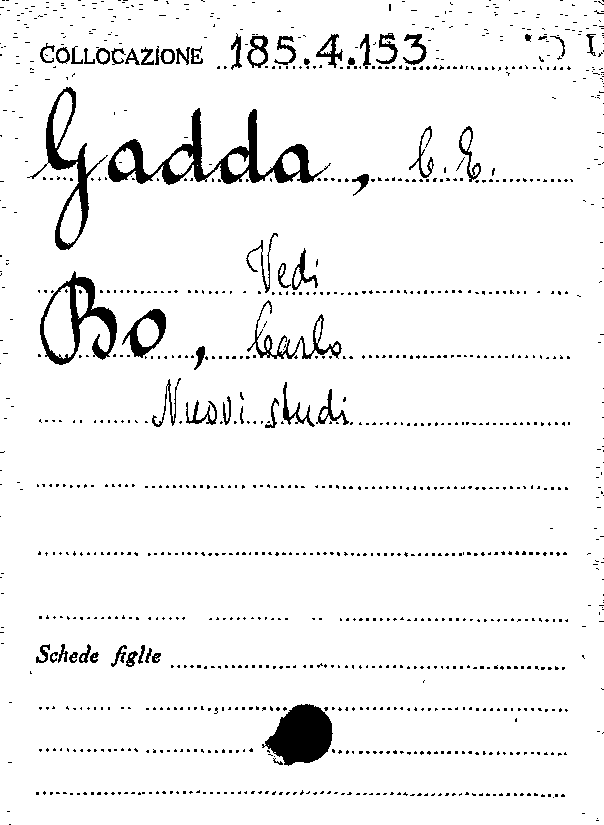 COLLOCAZIONE 185.4.153
Gadda, C. E.
Vedi
Bo, Carlo
Nuovi studi
Schede figlie